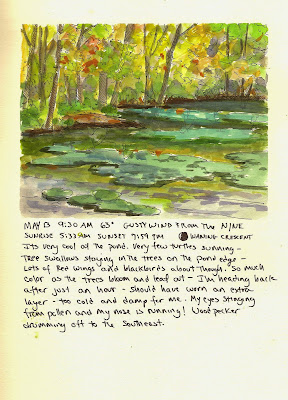 MAY 13 9:30 AM 63° GUSTY WIND FROM THE N/NE
SUNRISE 5:33 AM SUNSET 7:59 PM WANING CRESCENT
Its very cool at the pond. Very few turtles sunning -
Tree swallows staying in the trees on the pond edge -
Lots of Red wings and blackbirds about though. So much
color as the trees bloom and leaf out - I'm heading back
after just an hour - should have worn an extra
layer - too cold and damp for me. My eyes stinging
from pollen and my nose is running! Woodpecker
drumming off to the Southeast.